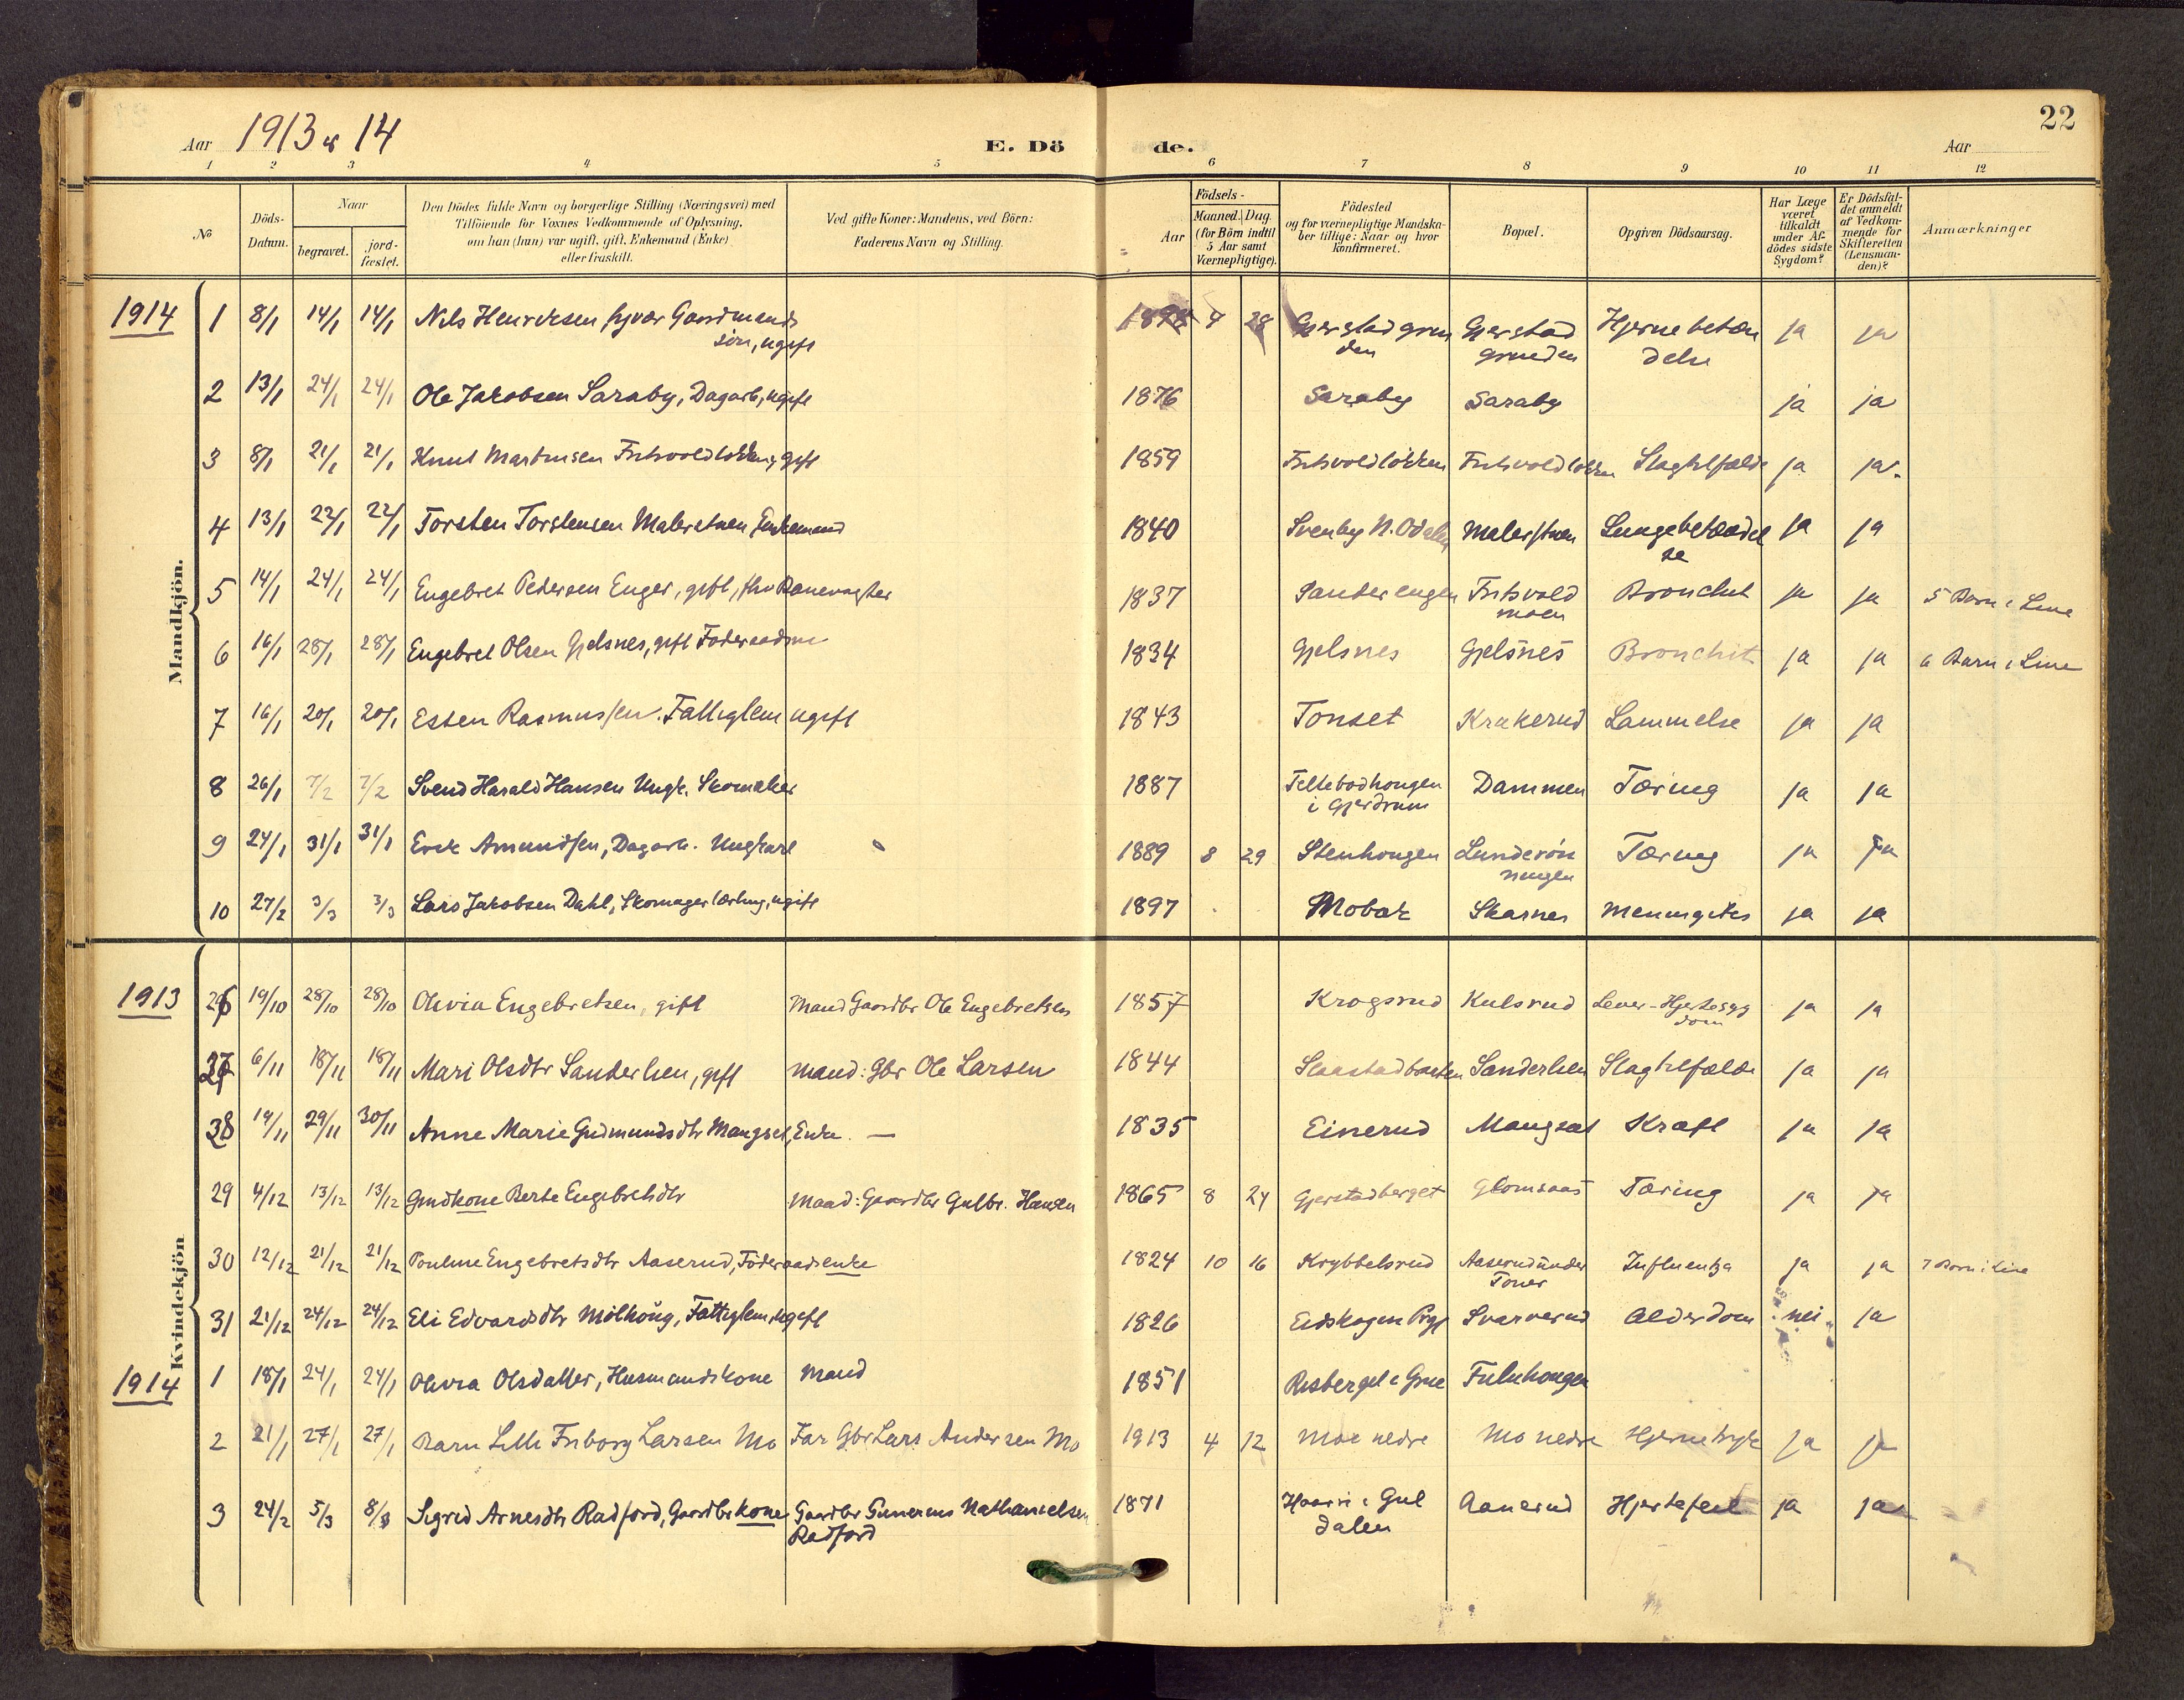 22
Aar 1913 & 14 E. Dö de. Aar
1 2 3 4 5 6 7 8 9 10 11 12
№ Döds-Datum. Naar begravet. jord-fæstet. Den Dödes fulde Navn og borgerlige Stilling (Næringsvei) med Tilföiende for Voxnes Vedkommende af Oplysning, om han (hun) var ugift, gift, Enkemand (Enke) eller fraskilt. Ved gifte Koner: Mandens, ved Börn: Faderens Navn og Stilling. Födsels- Aar Maaned. Dag. (for Börn indtil 5 Aar samt Værnepligtige). Födested og for værnepligtige Mandskaber tillige: Naar og hvor konfirmeret. Bopæl. Opgiven Dödsaarsag. Har Læge været tilkaldt under Afdödes sidste Sygdom? Er Dödsfaldet anmeldt af Vedkommende for Skifteretten (Lensmanden)? Anmærkninger
Mandkjön.
1914 1 8/1 14/1 14/1 Nils Henriksen Gaardmands 4 28 Gjerstad grun Gjerstad Hjernebetæn ja ja
søn, ugift den grunden delse
2 13/1 24/1 24/1 Ole Jakobsen Saraby, Dagarb, ugift 1876 Saraby Saraby ja ja
3 8/1 21/1 21/1 Knut Martinsen Fritsvoldløkken, gift 1859 Fritsvoldløkken Fritsvoldløkken Slagtilfælde ja ja.
4 13/1 22/1 22/1 Torsten Torstensen Malerstuen Enkemand 1840 Svenby N. Odalen Malerstuen Lungebetændel ja ja
se
5 14/1 24/1 24/1 Engebret Pedersen Enger, gift, fhv Banevogter 1837 Sanderengen Fritsvold Bronchit ja ja 5 Barn i Live
moen
6 16/1 28/1 28/1 Engebret Olsen Gjelsnes, gift Föderaadsm 1834 Gjelsnes Gjelsnes Bronchit ja ja 6 Barn i Live
7 16/1 20/1 20/1 Esten Rasmussen. Fattiglem ugift 1843 Tonset Krakerud Lammelse ja ja
8 26/1 7/2 7/2 Svend Harald Hansen Ungk. Skomaker 1887 Teltebodhougen Dammen Tæring ja ja
i Gjerdrum
9 24/1 31/1 31/1 Erik Amundsen, Dagarb. Ungkarl 1889 8 29 Stenhougen Lunderøn Tæring ja ja
ningen
10 27/2 3/3 3/3 Lars Jakobsen Dahl, Skomagerlærling, ugift 1897 Mobak Skarnes Meningites ja ja
Kvindekjön
1913 26 19/10 28/10 28/10 Olivia Engebretsen, gift Mand Gaardbr Ole Engebretsen 1857 Krogsrud Kulsrud Lever-Hjertesyg ja ja
dom
27 6/11 18/11 18/11 Mari Olsdtr Sanderlien, gift Mand: Gbr Ole Larsen 1844 Slaastadbraaten Sanderlien Slagtilfælde ja ja
28 19/11 29/11 30/11 Anne Marie Gudmundsdtr Mangset, Enke. — 1835 Einerud Mangset Kræft ja ja
29 4/12 13/12 13/12 Grndkone Berte Engebretsdtr Mand: Gaardbr Gulbr. Hansen 1865 8 24 Gjerstadberget Glomsaas Tæring ja ja
30 12/12 21/12 21/12 Pouline Engebretsdtr Aaserud, Föderaadsenke 1824 10 16 Krybbelsrud Aaserud under Influenza ja ja 7 Barn i Live
Toner
31 21/12 24/12 24/12 Eli Edvardsdtr Mölhöug, Fattiglem, ugift 1826 Eidskogen Prgj Svarverud Alderdom nei ja
1914 1 18/1 24/1 24/1 Olivia Olsdatter, Husmandskone Mand 1851 Risberget i Grue Fuluhougen
2 21/1 27/1 27/1 Barn Lilli Friborg Larsen Mo Far Gbr Lars Andersen Mo 1913 4 12 Moe nedre Mo nedre Hjernetryk ja ja
3 24/2 5/3 8/3 Sigrid Arnesdtr Radfjord, Gaardbrkone Gaardbr Gunerius Nathanielsen 1871 Haarr i Gul Aanerud Hjertefeil ja ja
Radfjord dalen